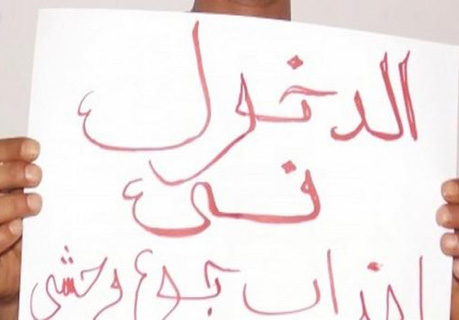 الدخول
فى
اضراب جوع وحشى